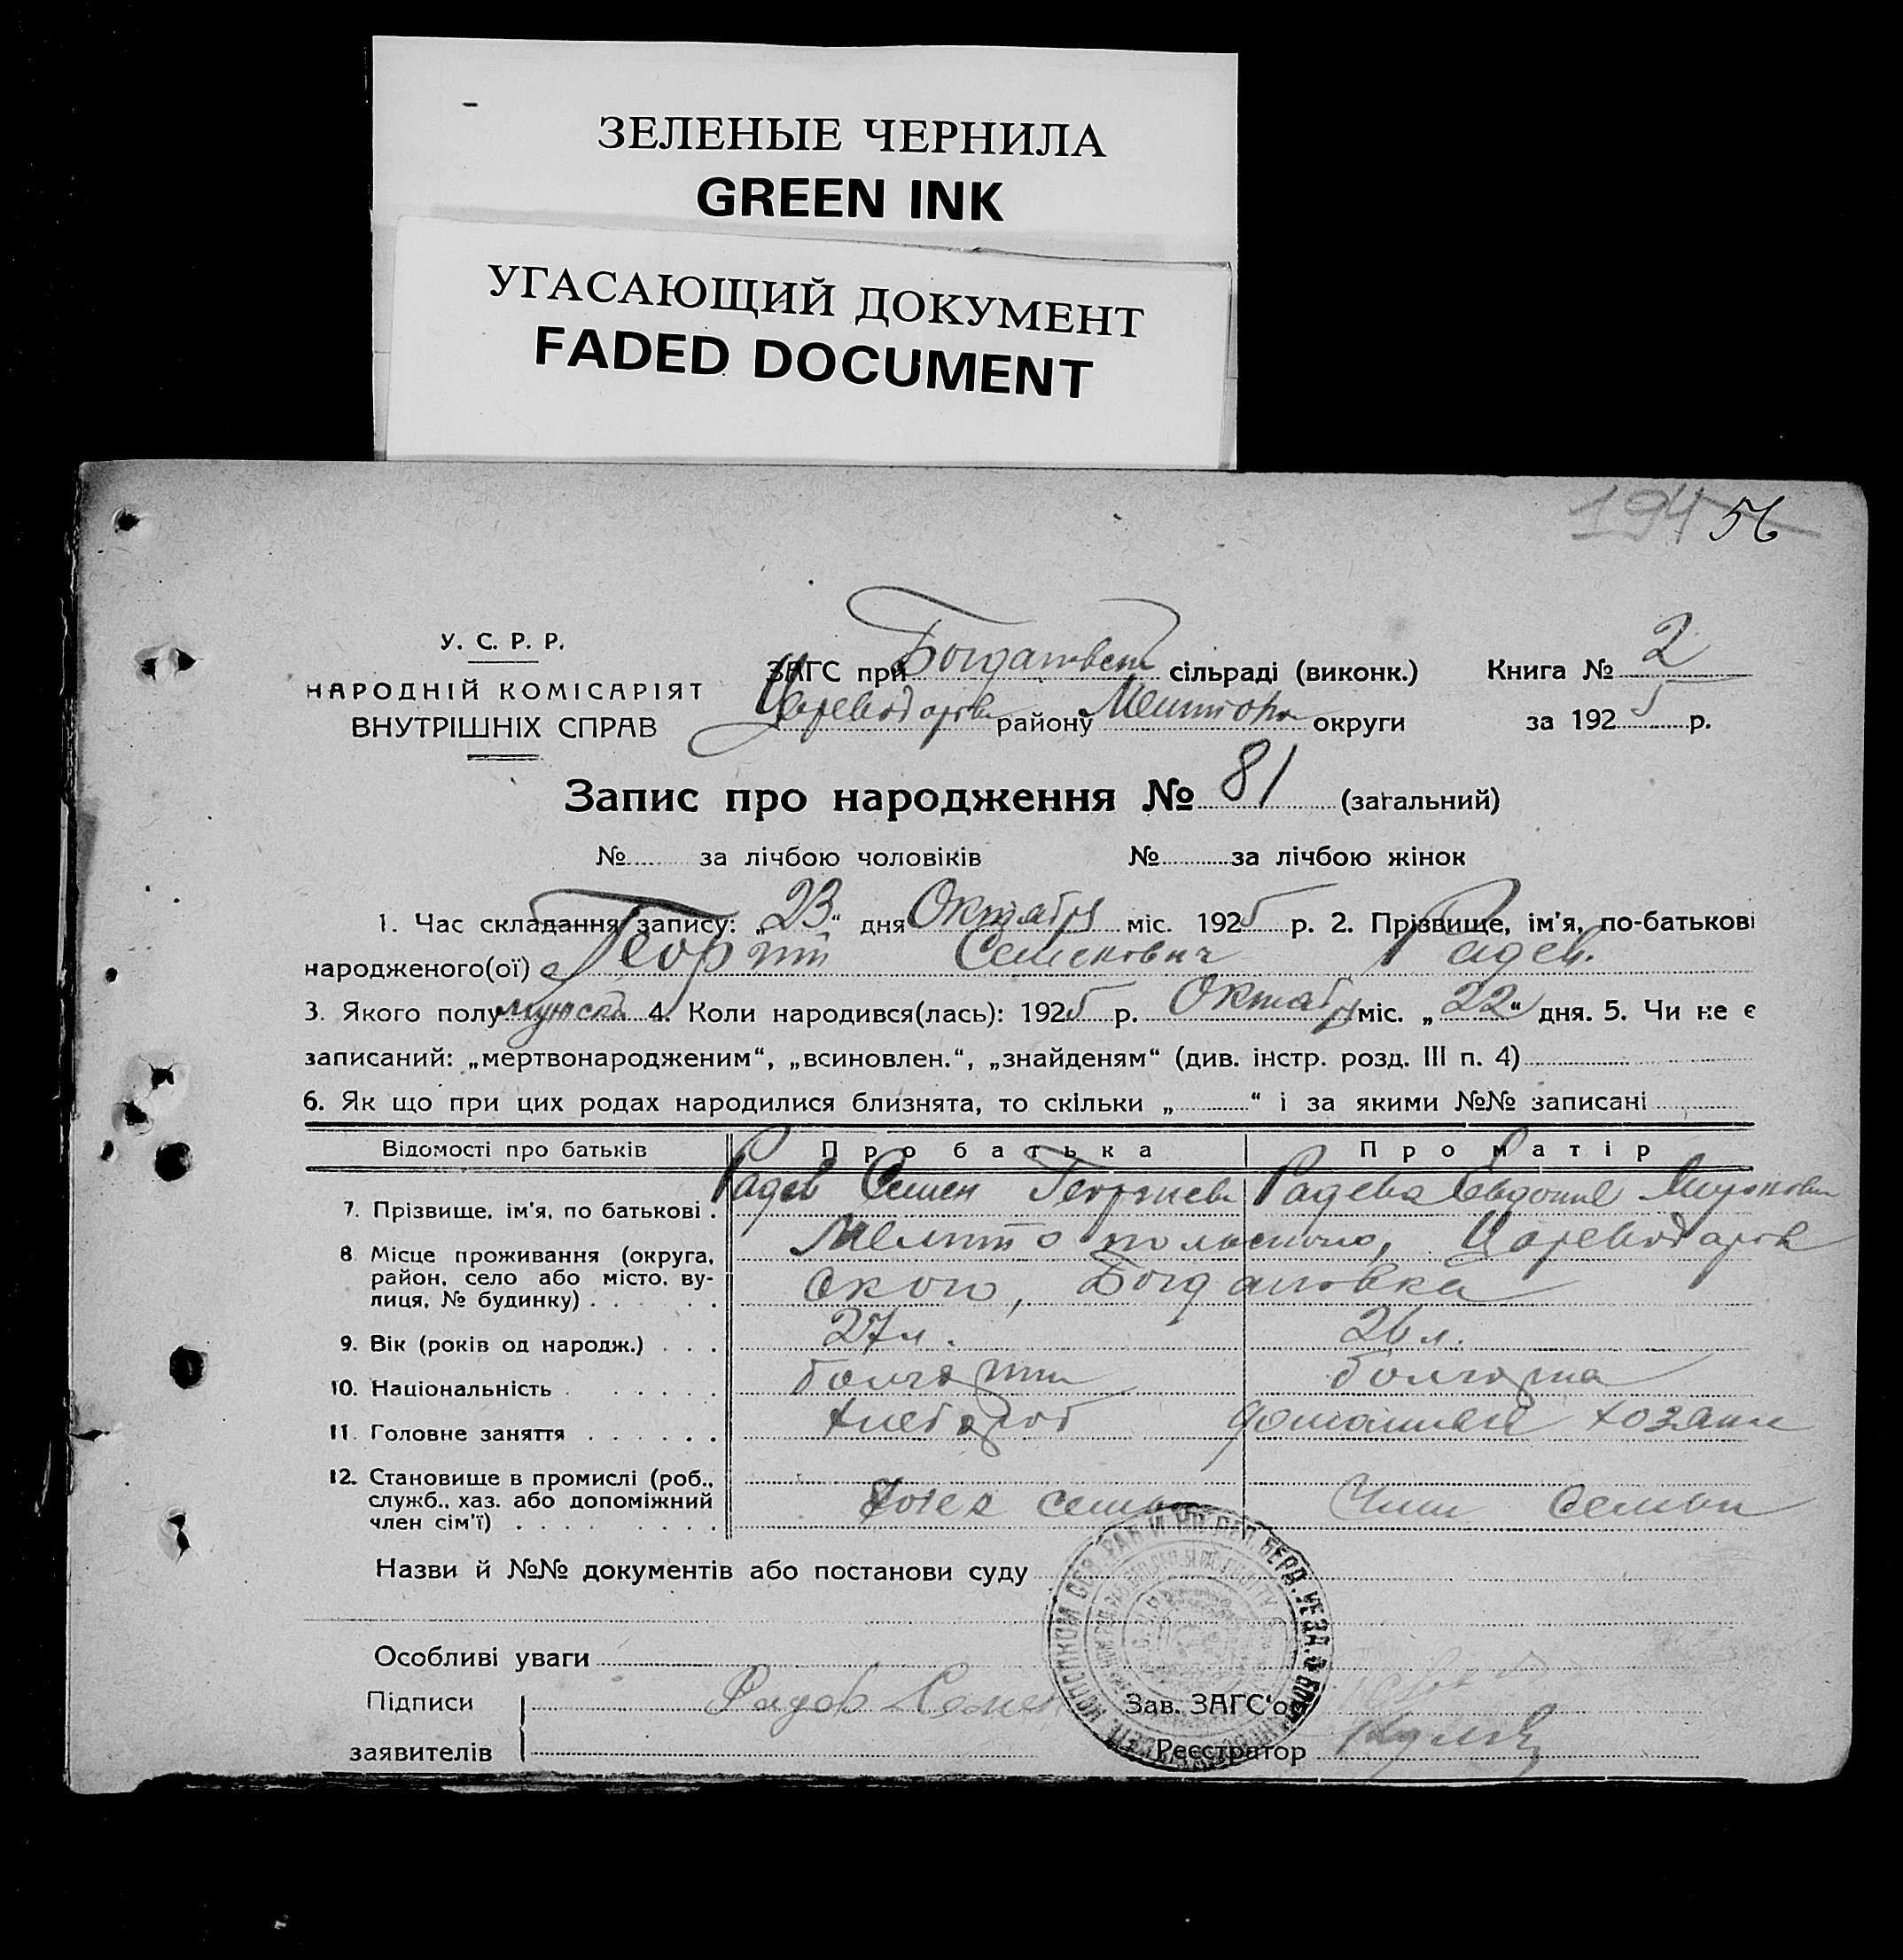 ЗЕЛЕНЫЕ ЧЕРНИЛА
GREEN INK
УГАСАЮЩИЙ ДОКУМЕНТ
FADED DOCUMENT
194 56
У. С. Р. Р.
НАРОДНІЙ КОМІСАРІЯТ
ВНУТРІШНІХ СПРАВ
ЗАГС при сільраді (виконк.) Книга № 2
району округи за 1925 р.
Запис про народження № 81 (загальний)
№ за лічбою чоловіків № за лічбою жінок
1. Час складання запису: „23“ дня Октября міс. 1925 р. 2. Прізвище, ім'я, по-батькові
народженого(ої) Георгий Семенович Радев.
3. Якого полу мужск. 4. Коли народився(лась): 1925 р. Октября міс. „22“ дня. 5. Чи не є
записаний: „мертвонародженим“, „всиновлен.“, „знайденям“ (див. інстр. розд. III п. 4)
6. Як що при цих родах народилися близнята, то скільки „ “ і за якими №№ записані
Відомості про батьків Про батька Про матір
7. Прізвище, ім'я, по батькові . Радев Семен Георгиев Радева Евдокия
8 Місце проживання (округа, район, село або місто, вулиця, № будинку) . Мелитопольского, Цареводаров
ского, Богдановка
9. Вік (років од народж.) . . . 27 л. 26 л.
10. Національність . болгарин болгарка
11. Головне заняття . хлебороб домашнея хозяйк
12. Становище в промислі (роб., служб., хаз. або допоміжний член сім'ї) . семьи Член семьи
Назви й №№ документів або постанови суду
Особливі уваги
Підписи Радев Семен Зав. ЗАГС'ом
заявителів Реєстратор